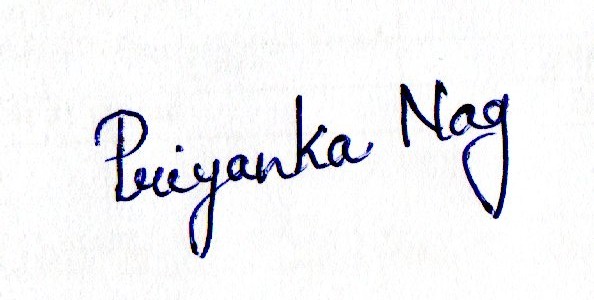 Priyanka Nag